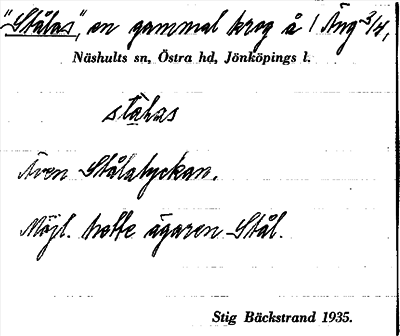 "Stålas", en gammal krog å 1 Äng 3/4,
Näshults sn, Östra hd, Jönköpings l.
stàlas
Även Stålalyckan.
Möjl. hette ägaren Stål.
Stig Bäckstrand 1935.